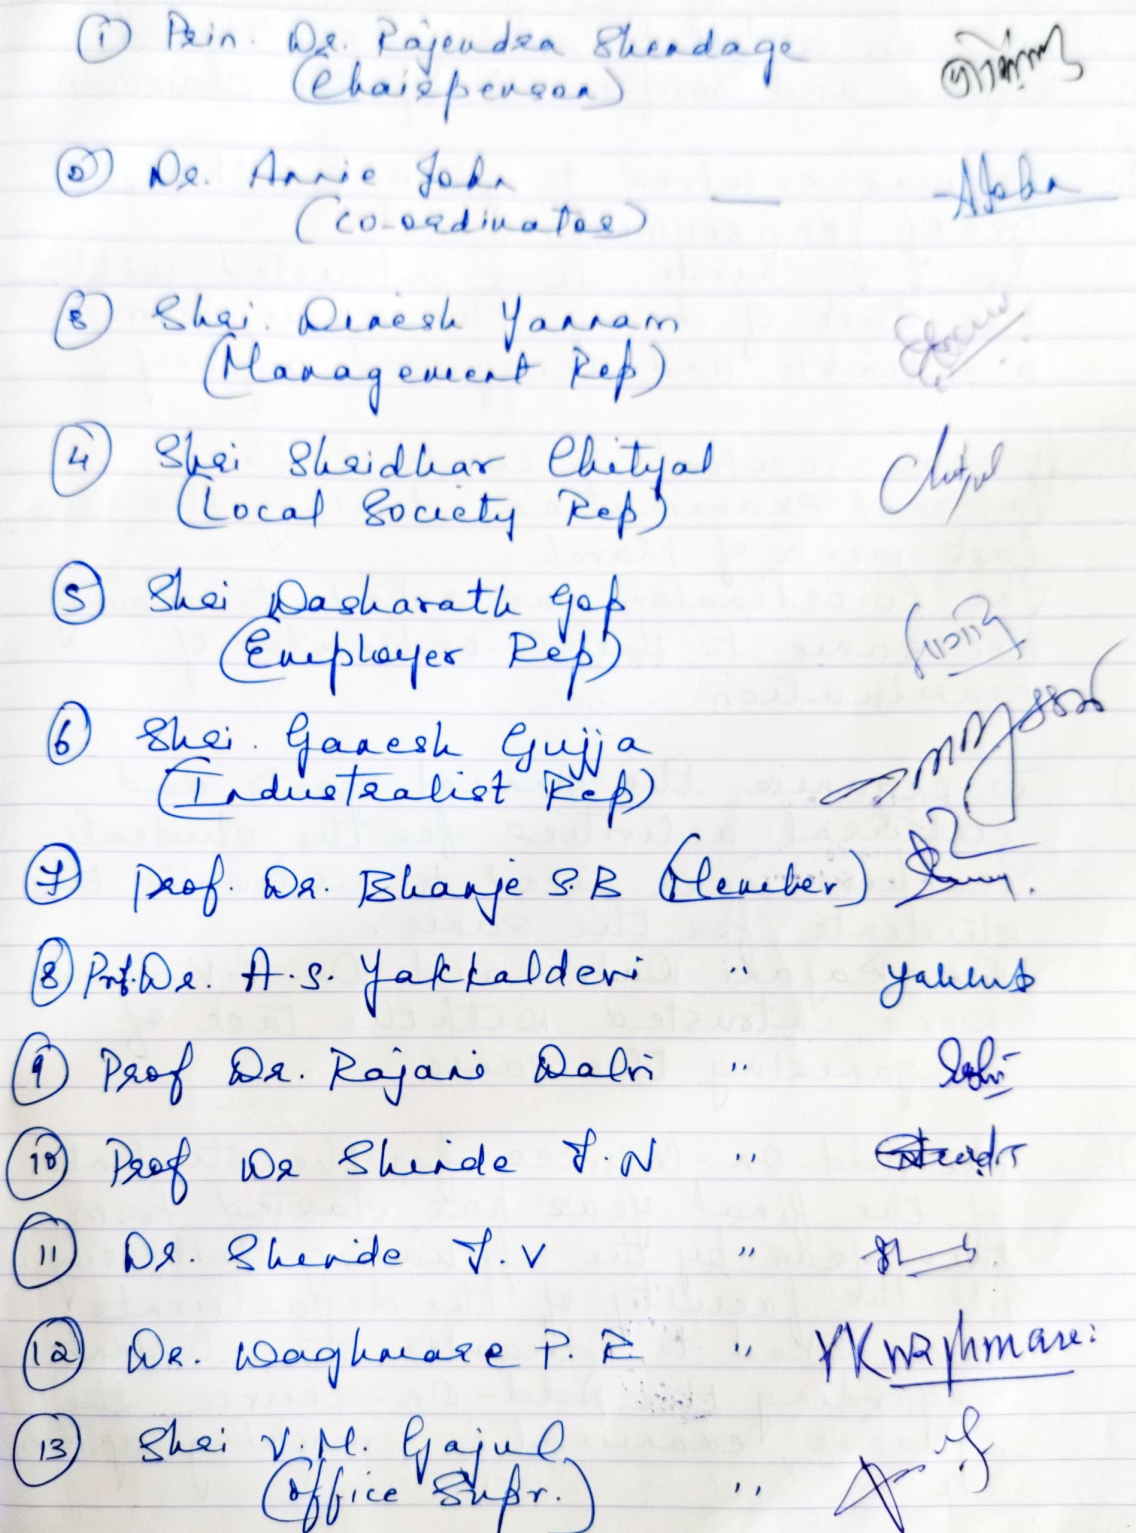 1 Prin. Dr. Rajendra Shendage
(Chairperson)
2 Dr. Annie John — AJohn
(Co-ordinator)
3 Shri. Dinesh Yannam
(Management Rep)
4 Shri Shridhar Chityal Chityal
(Local Society Rep)
5 Shri Dasharath Gop
(Employer Rep)
6 Shri. Ganesh Gujja
(Industralist Rep)
7 Prof. Dr. Bhanje S.B (Member)
8 Prof. Dr. A.S. Yakkaldevi "
9 Prof Dr. Rajani Dalvi "
10 Prof Dr Shinde J.N "
11 Dr. Shinde J.V "
12 Dr. Waghmare P.K " PKWaghmare
13 Shri V.M. Gajul
(Office Supr.) "